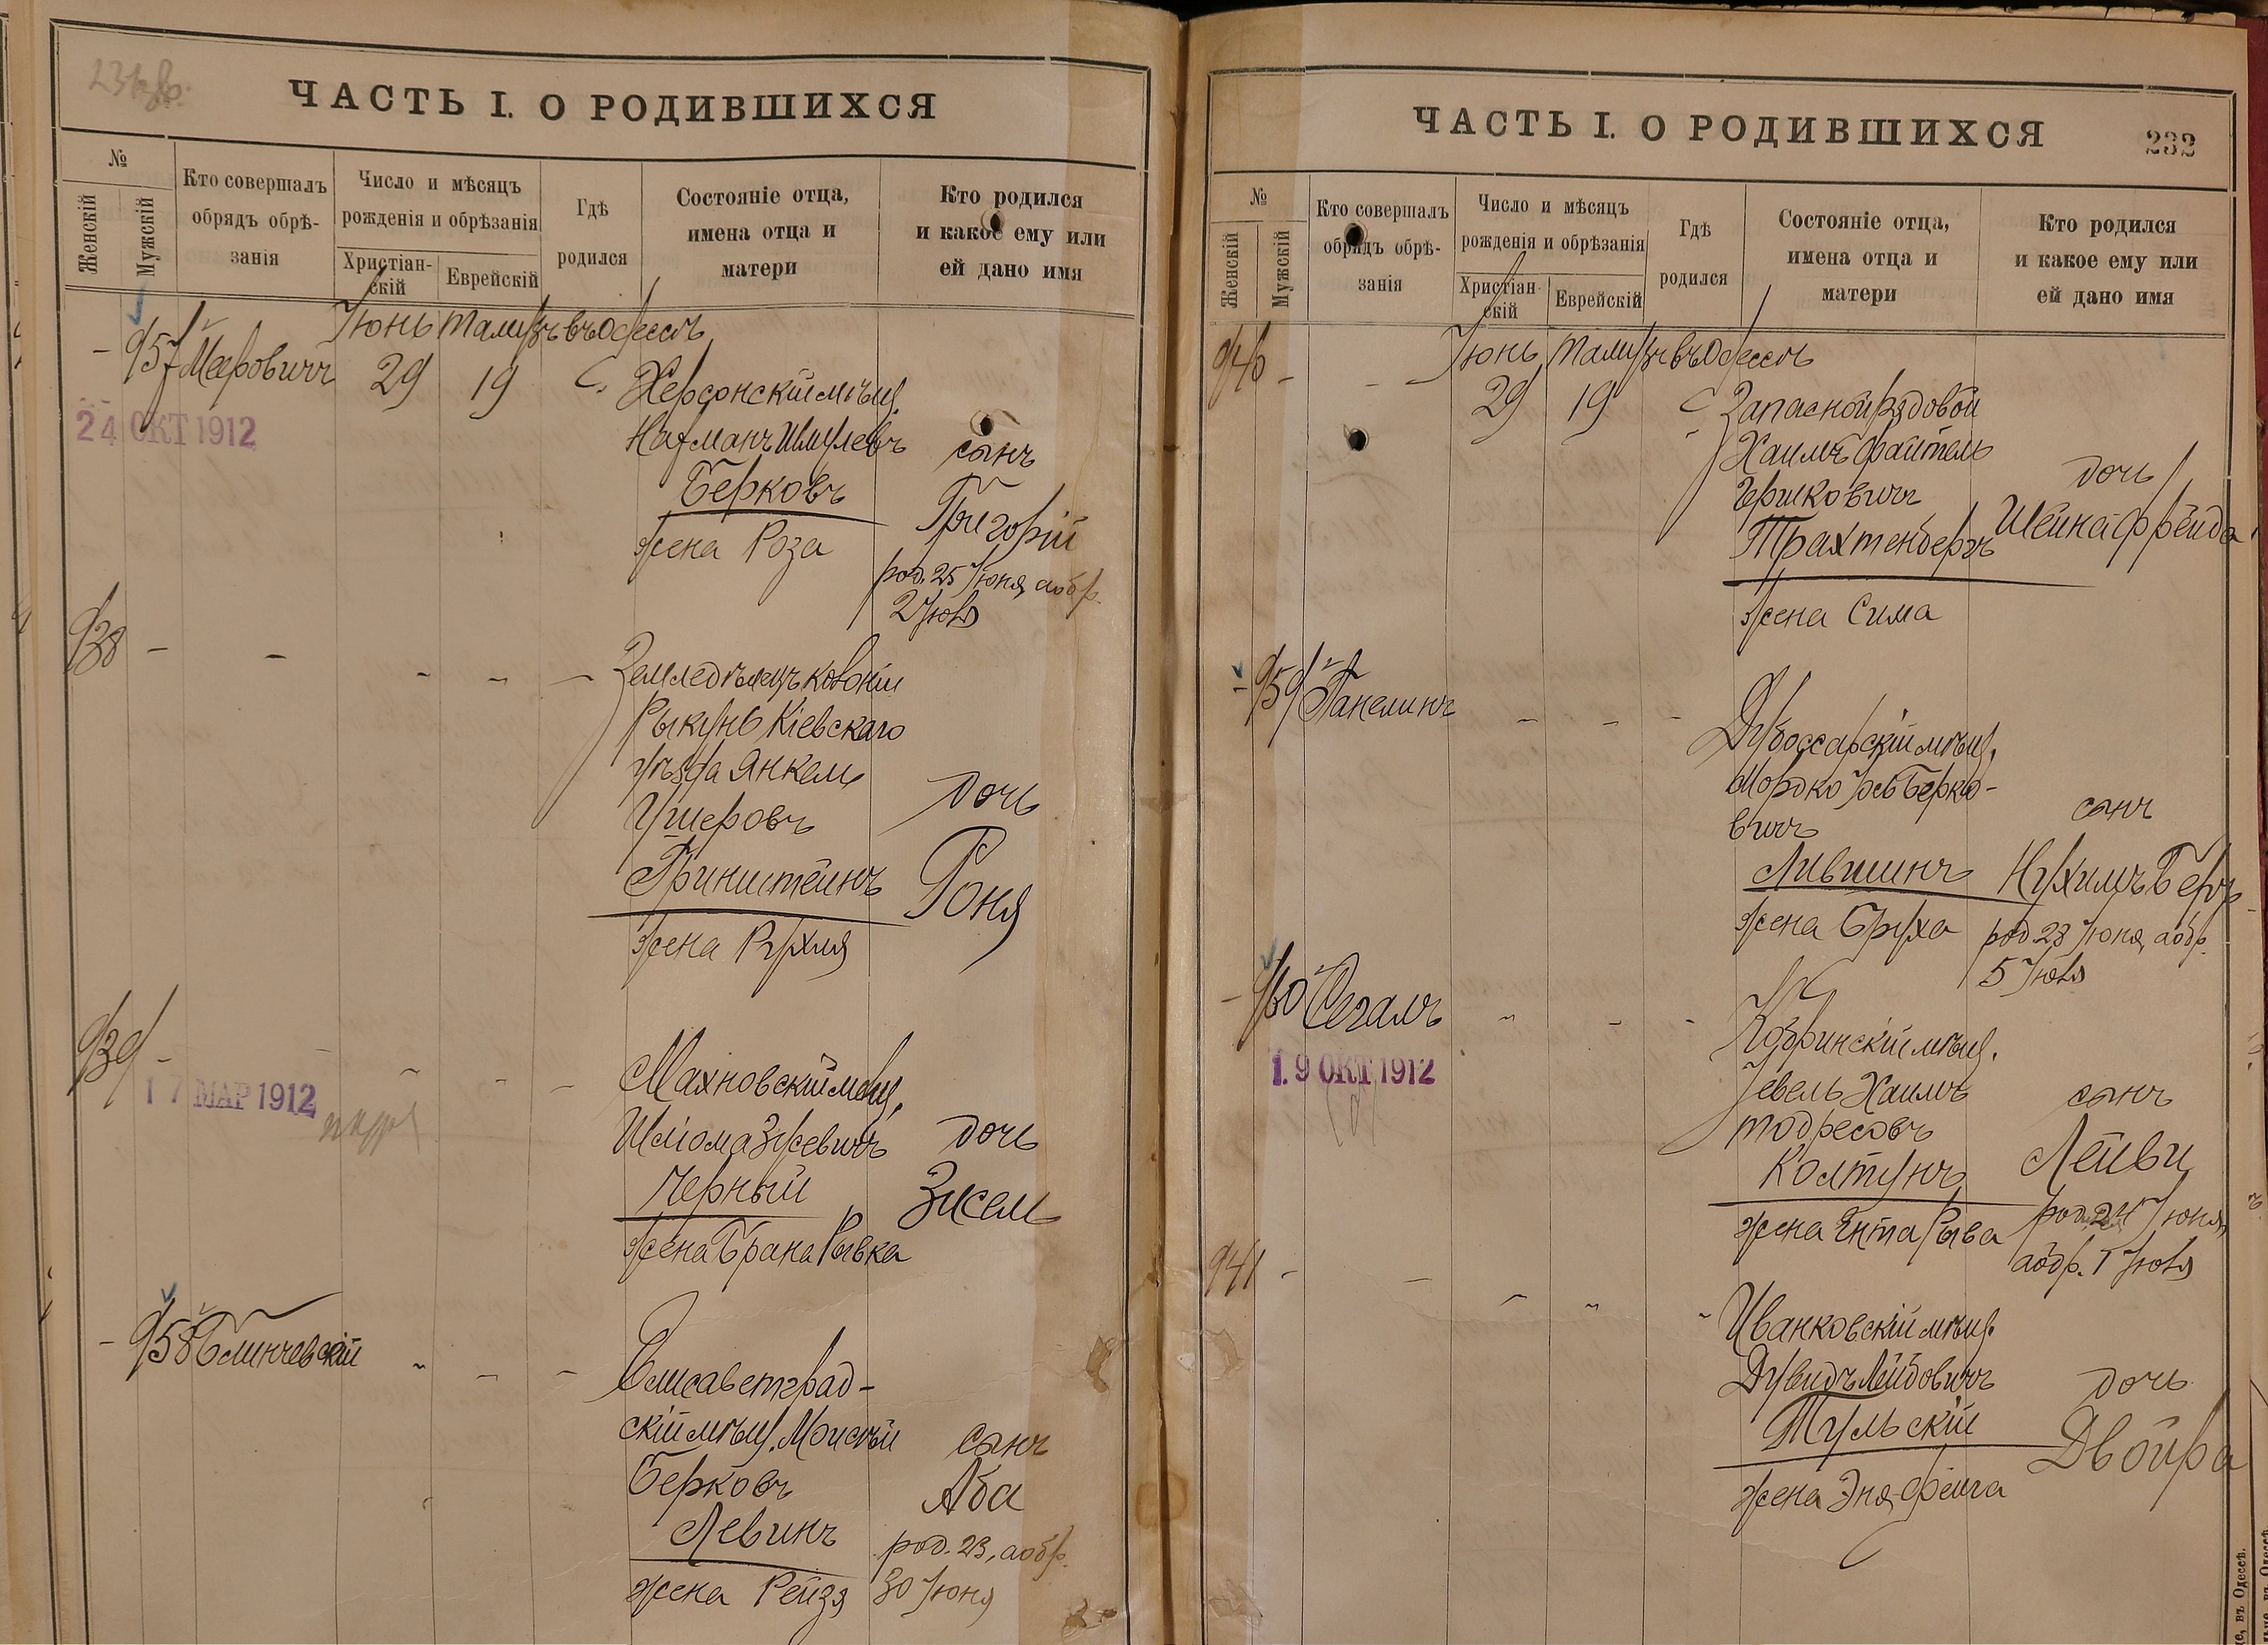 ЧАСТЬ I. О РОДИВШИХСЯ
№
Женскій
Мужскій
Кто совершалъ
обрядъ обрѣ-
занія
Число и мѣсяцъ
рожденія и обрѣзанія
Христіан-
скій
Еврейскій
Гдѣ
родился
Состояніе отца,
имена отца и
матери
Кто родился
и какое ему или
ей дано имя
Іюнь Тамузъ въ Одессѣ
– 957 Мееровичъ 29 19
24 ОКТ 1912
Херсонскій мѣщ.
Нахманъ Шмулевъ
Берковъ
жена Роза
сынъ
Григорій
род. 25 Іюня, а обр.
2 Іюля
938 – – – – –
Земледѣлецъ колоніи
Рыкунь Кіевскаго
уѣзда Янкель
Ушеровъ
Гринштейнъ
жена Рухля
дочь
Роня
939 – – – –
17 МАР 1912
Махновскій мѣщ.
Шліома Зусевичъ
Черный
жена Брана Рывка
дочь
Зисель
– 958 Блинчевскій – – –
Елисаветград-
скій мѣщ. Моисей
Берковъ
Левинъ
жена Рейзя
сынъ
Аба
род. 23, а обр.
30 Іюня
ЧАСТЬ I. О РОДИВШИХСЯ
232
№
Женскій
Мужскій
Кто совершалъ
обрядъ обрѣ-
занія
Число и мѣсяцъ
рожденія и обрѣзанія
Христіан-
скій
Еврейскій
Гдѣ
родился
Состояніе отца,
имена отца и
матери
Кто родился
и какое ему или
ей дано имя
Іюнь Тамузъ въ Одессѣ
940 – – 29 19
Запасной рядовой
Хаимъ Файтель
Гершковичъ
Трахтенбергъ
жена Сима
дочь
Шейна Фрейда
– 959 Танелинъ – – –
Дубоссарскій мѣщ.
Мордко Берко-
вичъ
Лившинъ
жена Бруха
сынъ
Нухимъ Беръ
род. 28 Іюня, а обр.
5 Іюля
– 960 Сегалъ – – –
19 ОКТ 1912
Кобринскій мѣщ.
Зевель Хаимъ
Тодресовъ
Колтунъ
жена Ента Рыва
сынъ
Лейви
род. 24 Іюня,
а обр. 1 Іюля
941 – – – – –
Иванковскій мѣщ.
Дувидъ Лейбовичъ
Тульскій
жена Эня-Фейга
дочь
Двойра